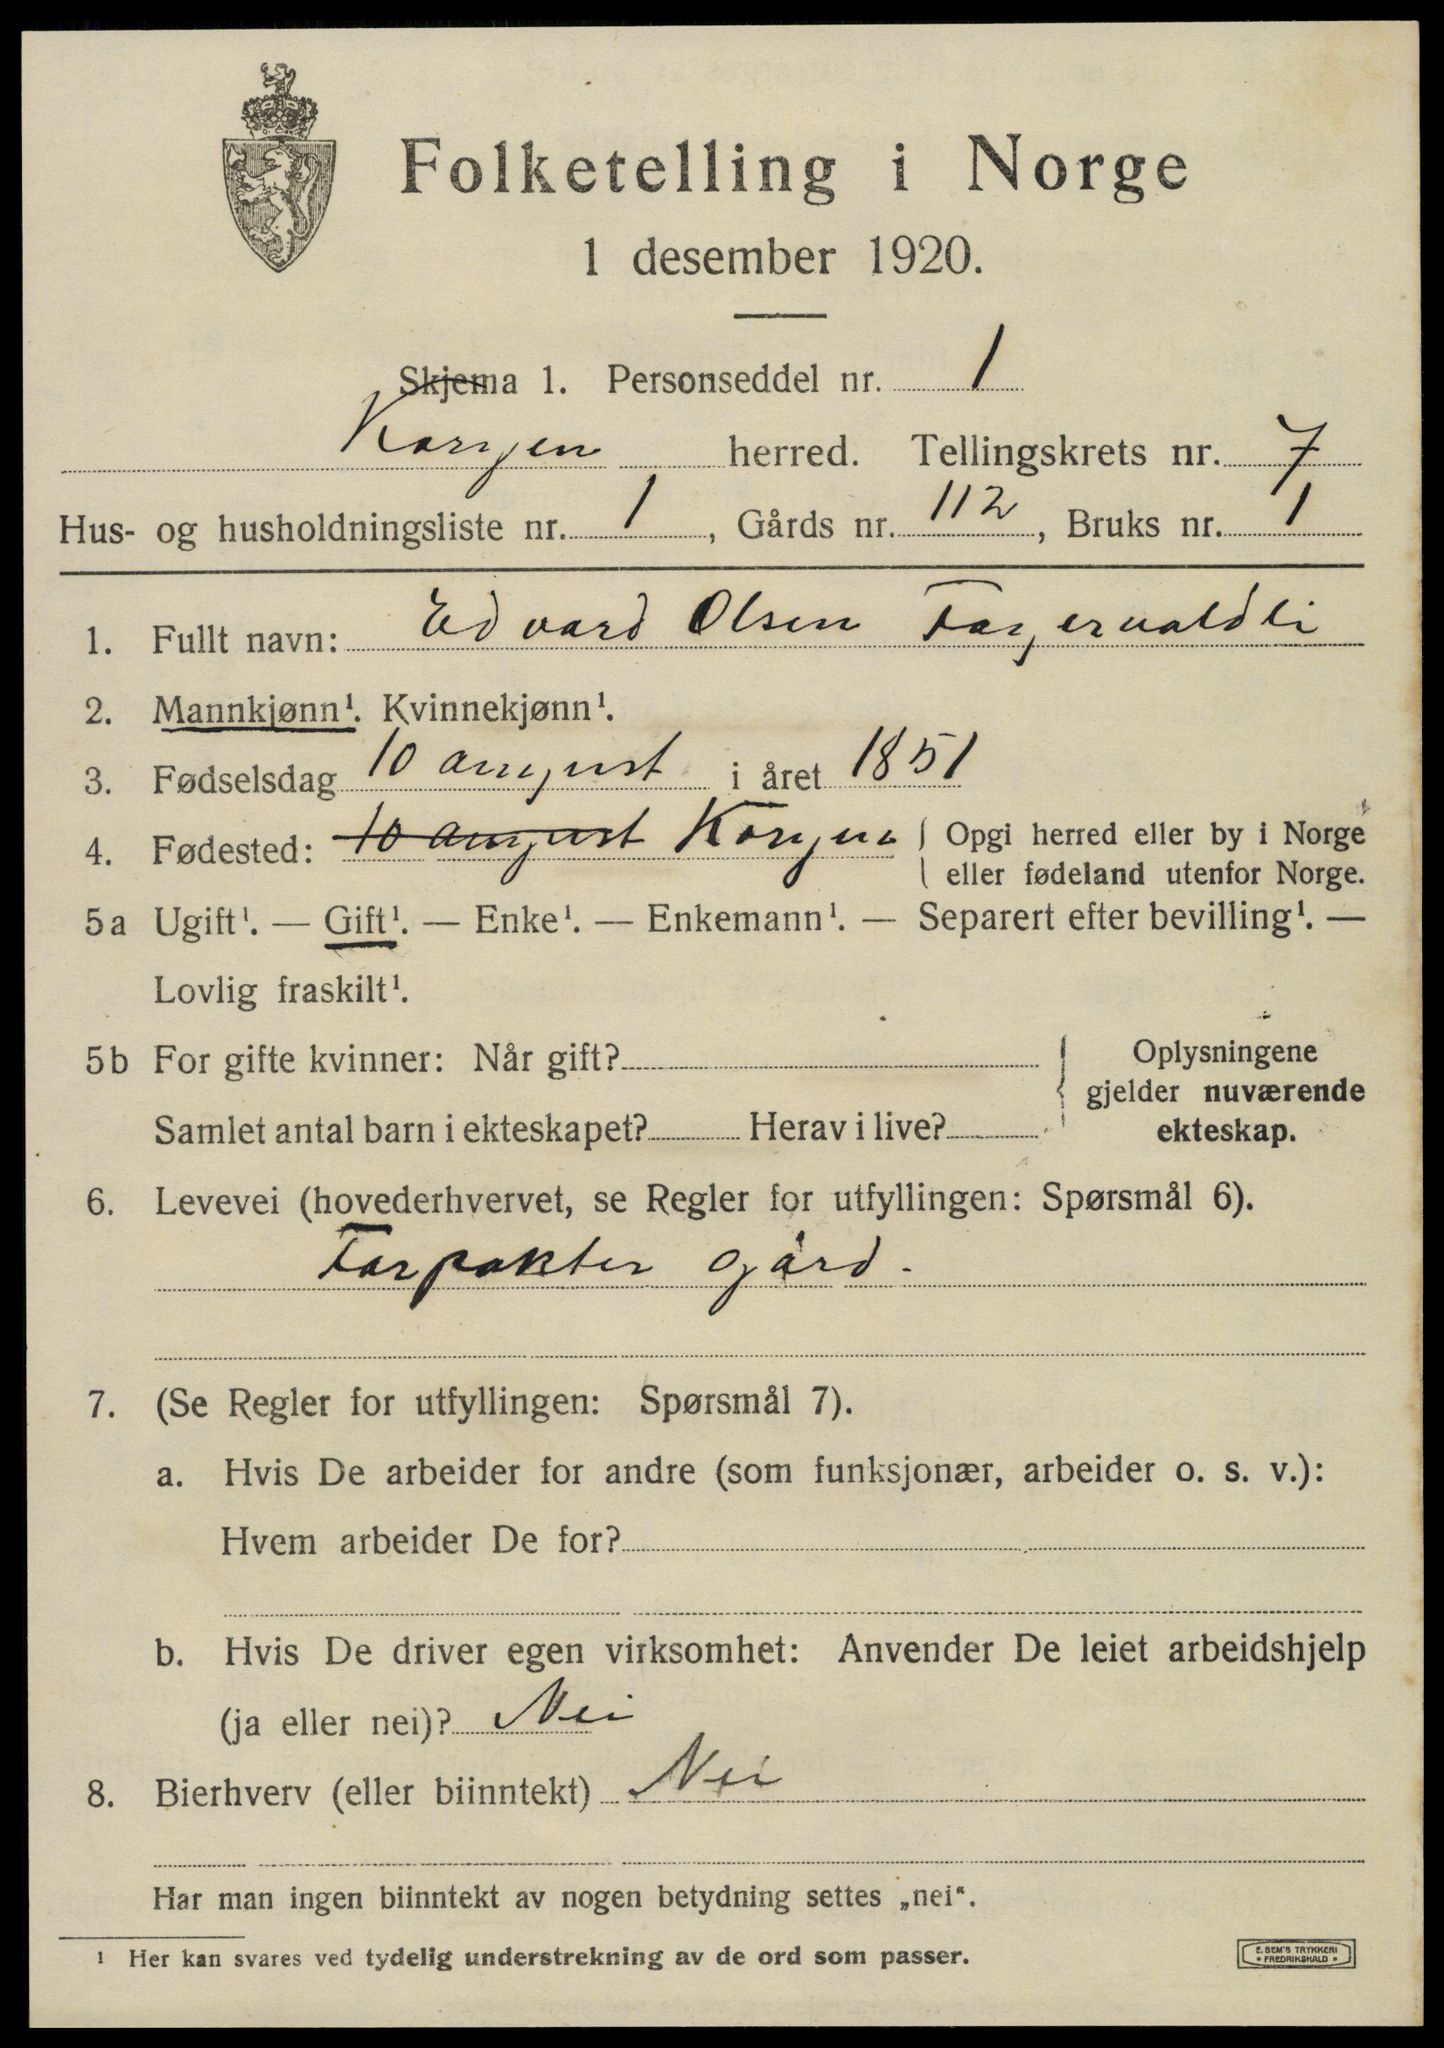 Folketelling i Norge
1 desember 1920.
Skjema 1. Personseddel nr. 1
Korgen herred. Tellingskrets nr. 7
Hus- og husholdningsliste nr. 1, Gårds nr. 112, Bruks nr. 1
1. Fullt navn: Edvard Olsen Fagervoldli
2. Mannkjønn¹. Kvinnekjønn¹.
3. Fødselsdag 10 august i året 1851
4. Fødested: 10 august Korgen { Opgi herred eller by i Norge
eller fødeland utenfor Norge.
5a Ugift¹. — Gift¹. — Enke¹. — Enkemann¹. — Separert efter bevilling¹. —
Lovlig fraskilt¹.
5b For gifte kvinner: Når gift?
Samlet antal barn i ekteskapet? Herav i live?
Oplysningene
gjelder nuværende
ekteskap.
6. Levevei (hovederhvervet, se Regler for utfyllingen: Spørsmål 6).
Forpakter gård.
7. (Se Regler for utfyllingen: Spørsmål 7).
a. Hvis De arbeider for andre (som funksjonær, arbeider o. s. v.):
Hvem arbeider De for?
b. Hvis De driver egen virksomhet: Anvender De leiet arbeidshjelp
(ja eller nei)? Nei
8. Bierhverv (eller biinntekt) Nei
Har man ingen biinntekt av nogen betydning settes „nei“.
¹ Her kan svares ved tydelig understrekning av de ord som passer.
E. SEM'S TRYKKERI
• FREDRIKSHALD •